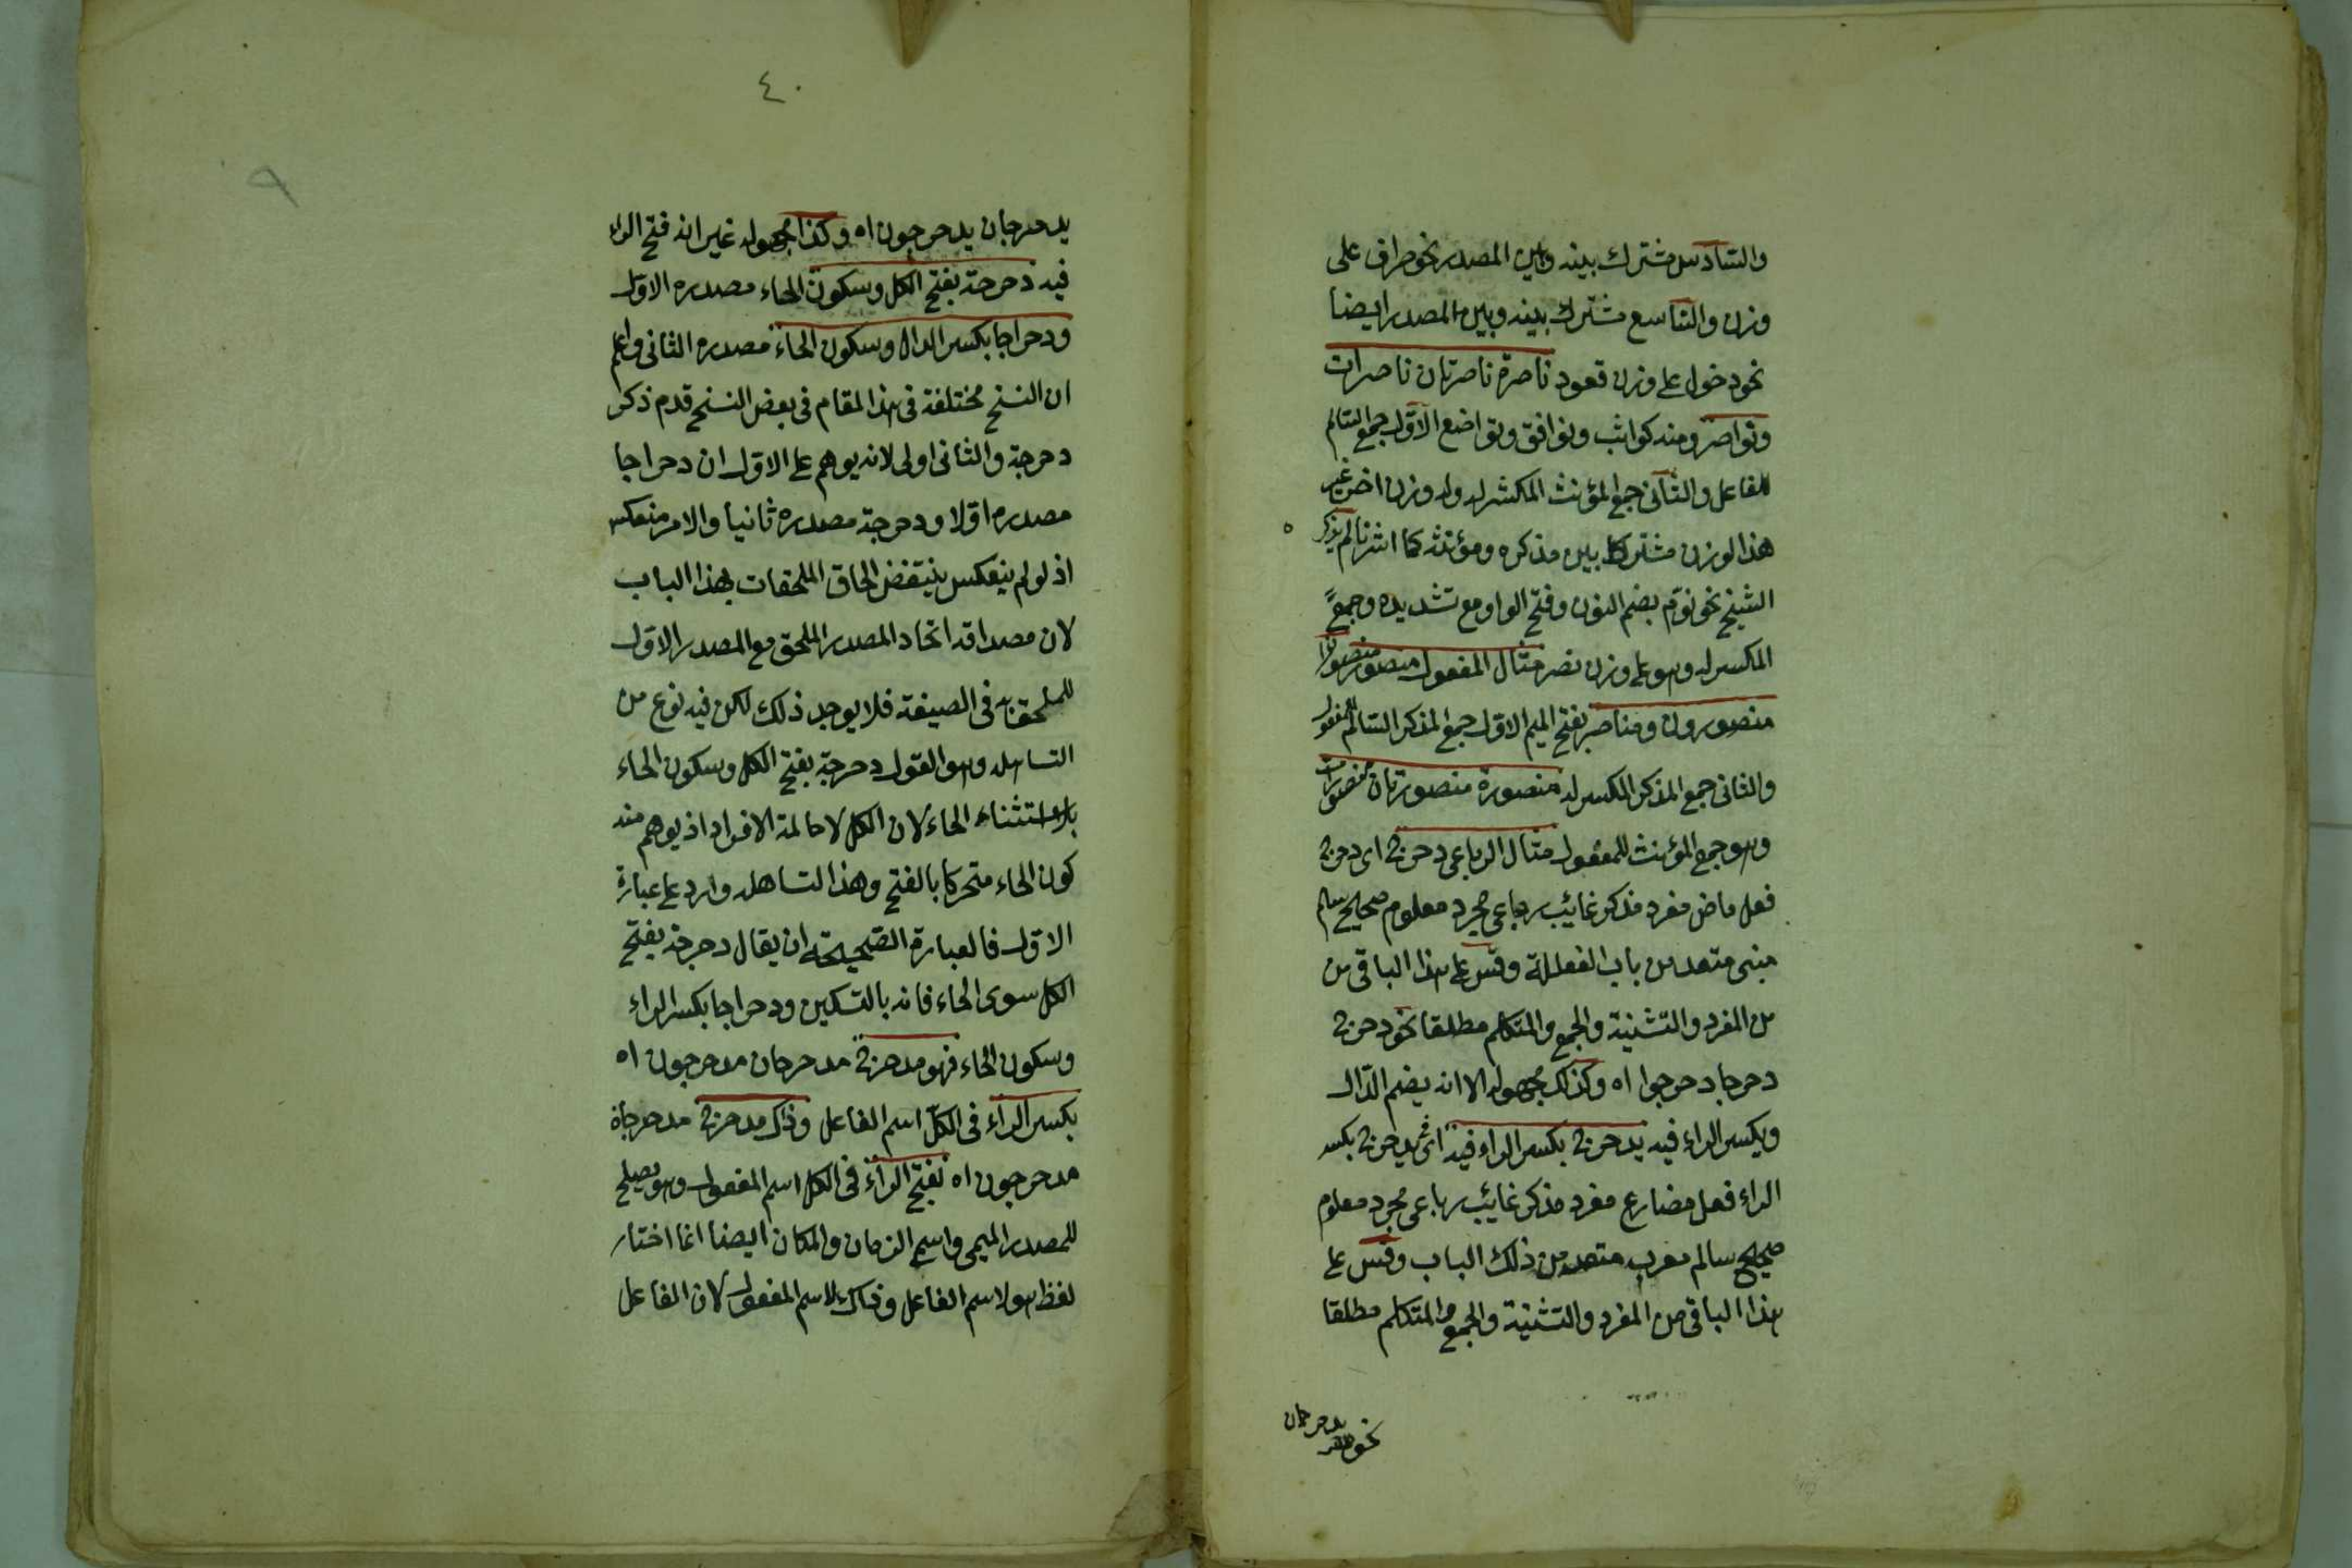 والسادس مشترك بينه وبين المصدر نحو صراف على
وزن والتاسع مشترك بينه وبين المصدر ايضا
نحو دخول على وزن قعود ناصرة ناصرتان ناصرات
ونواصر ومنه كواثب ونوافق وتواضع الاول جمع السالم
للفاعل والثانى جمع المؤنث المكسر له وله وزن اخر غير
هذا الوزن مشترك بين مذكره ومؤنثه كما اشرنا لم يذكر
الشيخ نحو نوّم بضم النون وفتح الواو مع تشديده وجمع
المكسر له وهو على وزن نصر مثال المفعول منصور منصوران
منصورون ومناصر بفتح الميم الاول جمع المذكر السالم للمفعول
والثانى جمع المذكر المكسر له منصورة منصورتان منصورات
وهو جمع المؤنث للمفعول مثال الرباعى دحرج اى دحرج
فعل ماض مفرد مذكر غائب رباعى مجرد معلوم صحيح سالم
مبنى متعد من باب الفعللة وقس على هذا الباقى من
من المفرد والتثنية والجمع والمتكلم مطلقا نحو دحرج
دحرجا دحرجوا اه وكذلك مجهوله الا انه بضم الدال
وبكسر الراء فيه يدحرج بكسر الراء فيه اى يدحرج بكسر
الراء فعل مضارع مفرد مذكر غائب رباعى مجرد معلوم
صحيح سالم معرب متعد من ذلك الباب وقس على
هذا الباقى من المفرد والتثنية والجمع والمتكلم مطلقا
نحو يدحرجان
٤٠
٩
يدحرجان يدحرجون اه وكذا مجهوله غير انه فتح الراء
فيه دحرجة بفتح الكل وسكون الحاء مصدره الاول
ودحراجا بكسر الدال وسكون الحاء مصدره الثانى واعلم
ان النسخ مختلفة فى هذا المقام فى بعض النسخ قدم ذكر
دحرجة والثانى اولى لانه يوهم على الاول ان دحراجا
مصدره اولا ودحرجة مصدره ثانيا والامر منعكس
اذ لو لم ينعكس ينتقض الحاق الملحقات بهذا الباب
لان مصداقه اتحاد المصدر الملحق مع المصدر الاول
للملحق به فى الصيغة فلا يوجد ذلك لكن فيه نوع من
التساهل وهو القول دحرجة بفتح الكل وسكون الحاء
بلا استثناء الحاء لان الكل لاحاطة الافراد اذ يوهم منه
كون الحاء متحركا بالفتح وهذا التساهل وارد على عبارة
الاول فالعبارة الصحيحة ان يقال دحرجة بفتح
الكل سوى الحاء فانه بالتسكين ودحراجا بكسر الراء
وسكون الحاء فهو مدحرج مدحرجان مدحرجون اه
بكسر الراء فى الكل اسم الفاعل وذاك مدحرج مدحرجاة
مدحرجون اه بفتح الراء فى الكل اسم المفعول وهو يصلح
للمصدر الميمى واسم الزمان والمكان ايضا انما اختار
لفظ هو لاسم الفاعل وذاك لاسم المفعول لان الفاعل